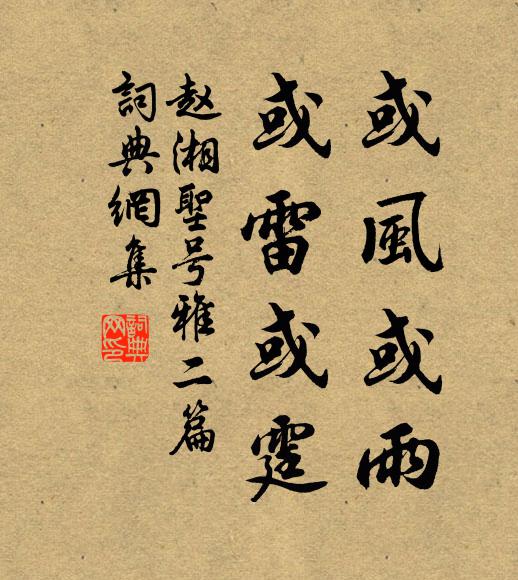 或風或雨
或雷或霆
赵湘聖号雅二篇
詞典網集
詞典網印